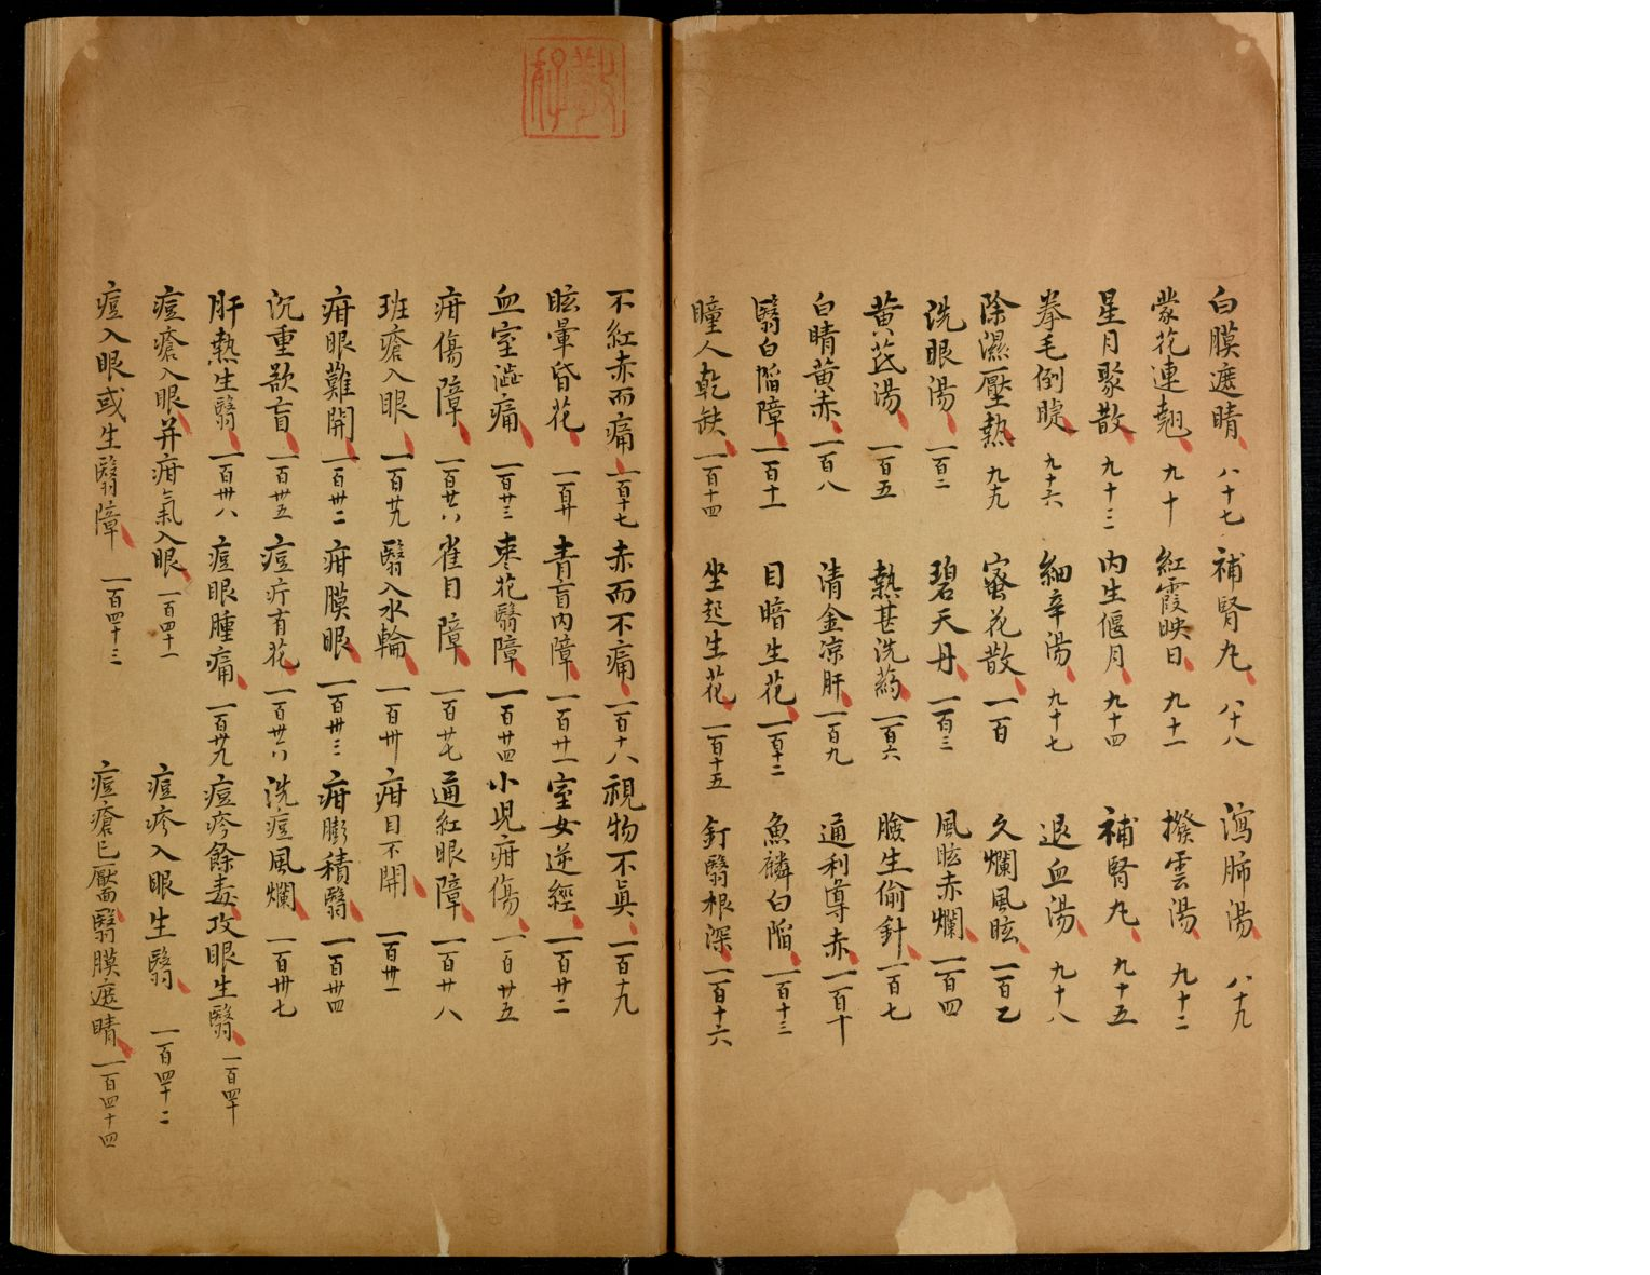 白膜遮睛 八十七 補腎丸 八十八 瀉肺湯 八十九
蒙花連翹 九十 紅霞映日 九十一 撥雲湯 九十二
星月聚散 九十三 內生偃月 九十四 補腎丸 九十五
拳毛倒睫 九十六 細辛湯 九十七 退血湯 九十八
除濕壓熱 九十九 蜜花散 一百 久爛風眩 一百乙
洗眼湯 一百二 碧天丹 一百三 風眩赤爛 一百四
黄芪湯 一百五 熱甚洗药 一百六 臉生偷針 一百七
白睛黄赤 一百八 清金凉肝 一百九 通利導赤 一百十
翳白陷障 一百十一 目暗生花 一百十二 魚鱗白陷 一百十三
瞳人乾缺 一百十四 坐起生花 一百十五 釘翳根深 一百十六
不紅赤而痛 一百十七 赤而不痛 一百十八 視物不真 一百十九
眩暈昏花 一百廿 青盲內障 一百廿一 室女逆經 一百廿二
血室澁痛 一百廿三 枣花翳障 一百廿四 小児疳傷 一百廿五
疳傷障 一百廿六 雀目障 一百廿七 通紅眼障 一百廿八
班瘡入眼 一百廿九 翳入水輪 一百卅 疳目不開 一百卅一
疳眼難開 一百卅二 疳膜眼 一百卅三 疳膨積翳 一百卅四
沉重欲盲 一百卅五 痘疔有花 一百卅六 洗痘風爛 一百卅七
肝熱生翳 一百卅八 痘眼腫痛 一百卅九 痘疹餘毒攻眼生翳 一百四十
痘瘡入眼并疳氣入眼 一百四十一 痘疹入眼生翳 一百四十二
痘入眼或生翳障 一百四十三 痘瘡已靨面翳膜遮睛 一百四十四